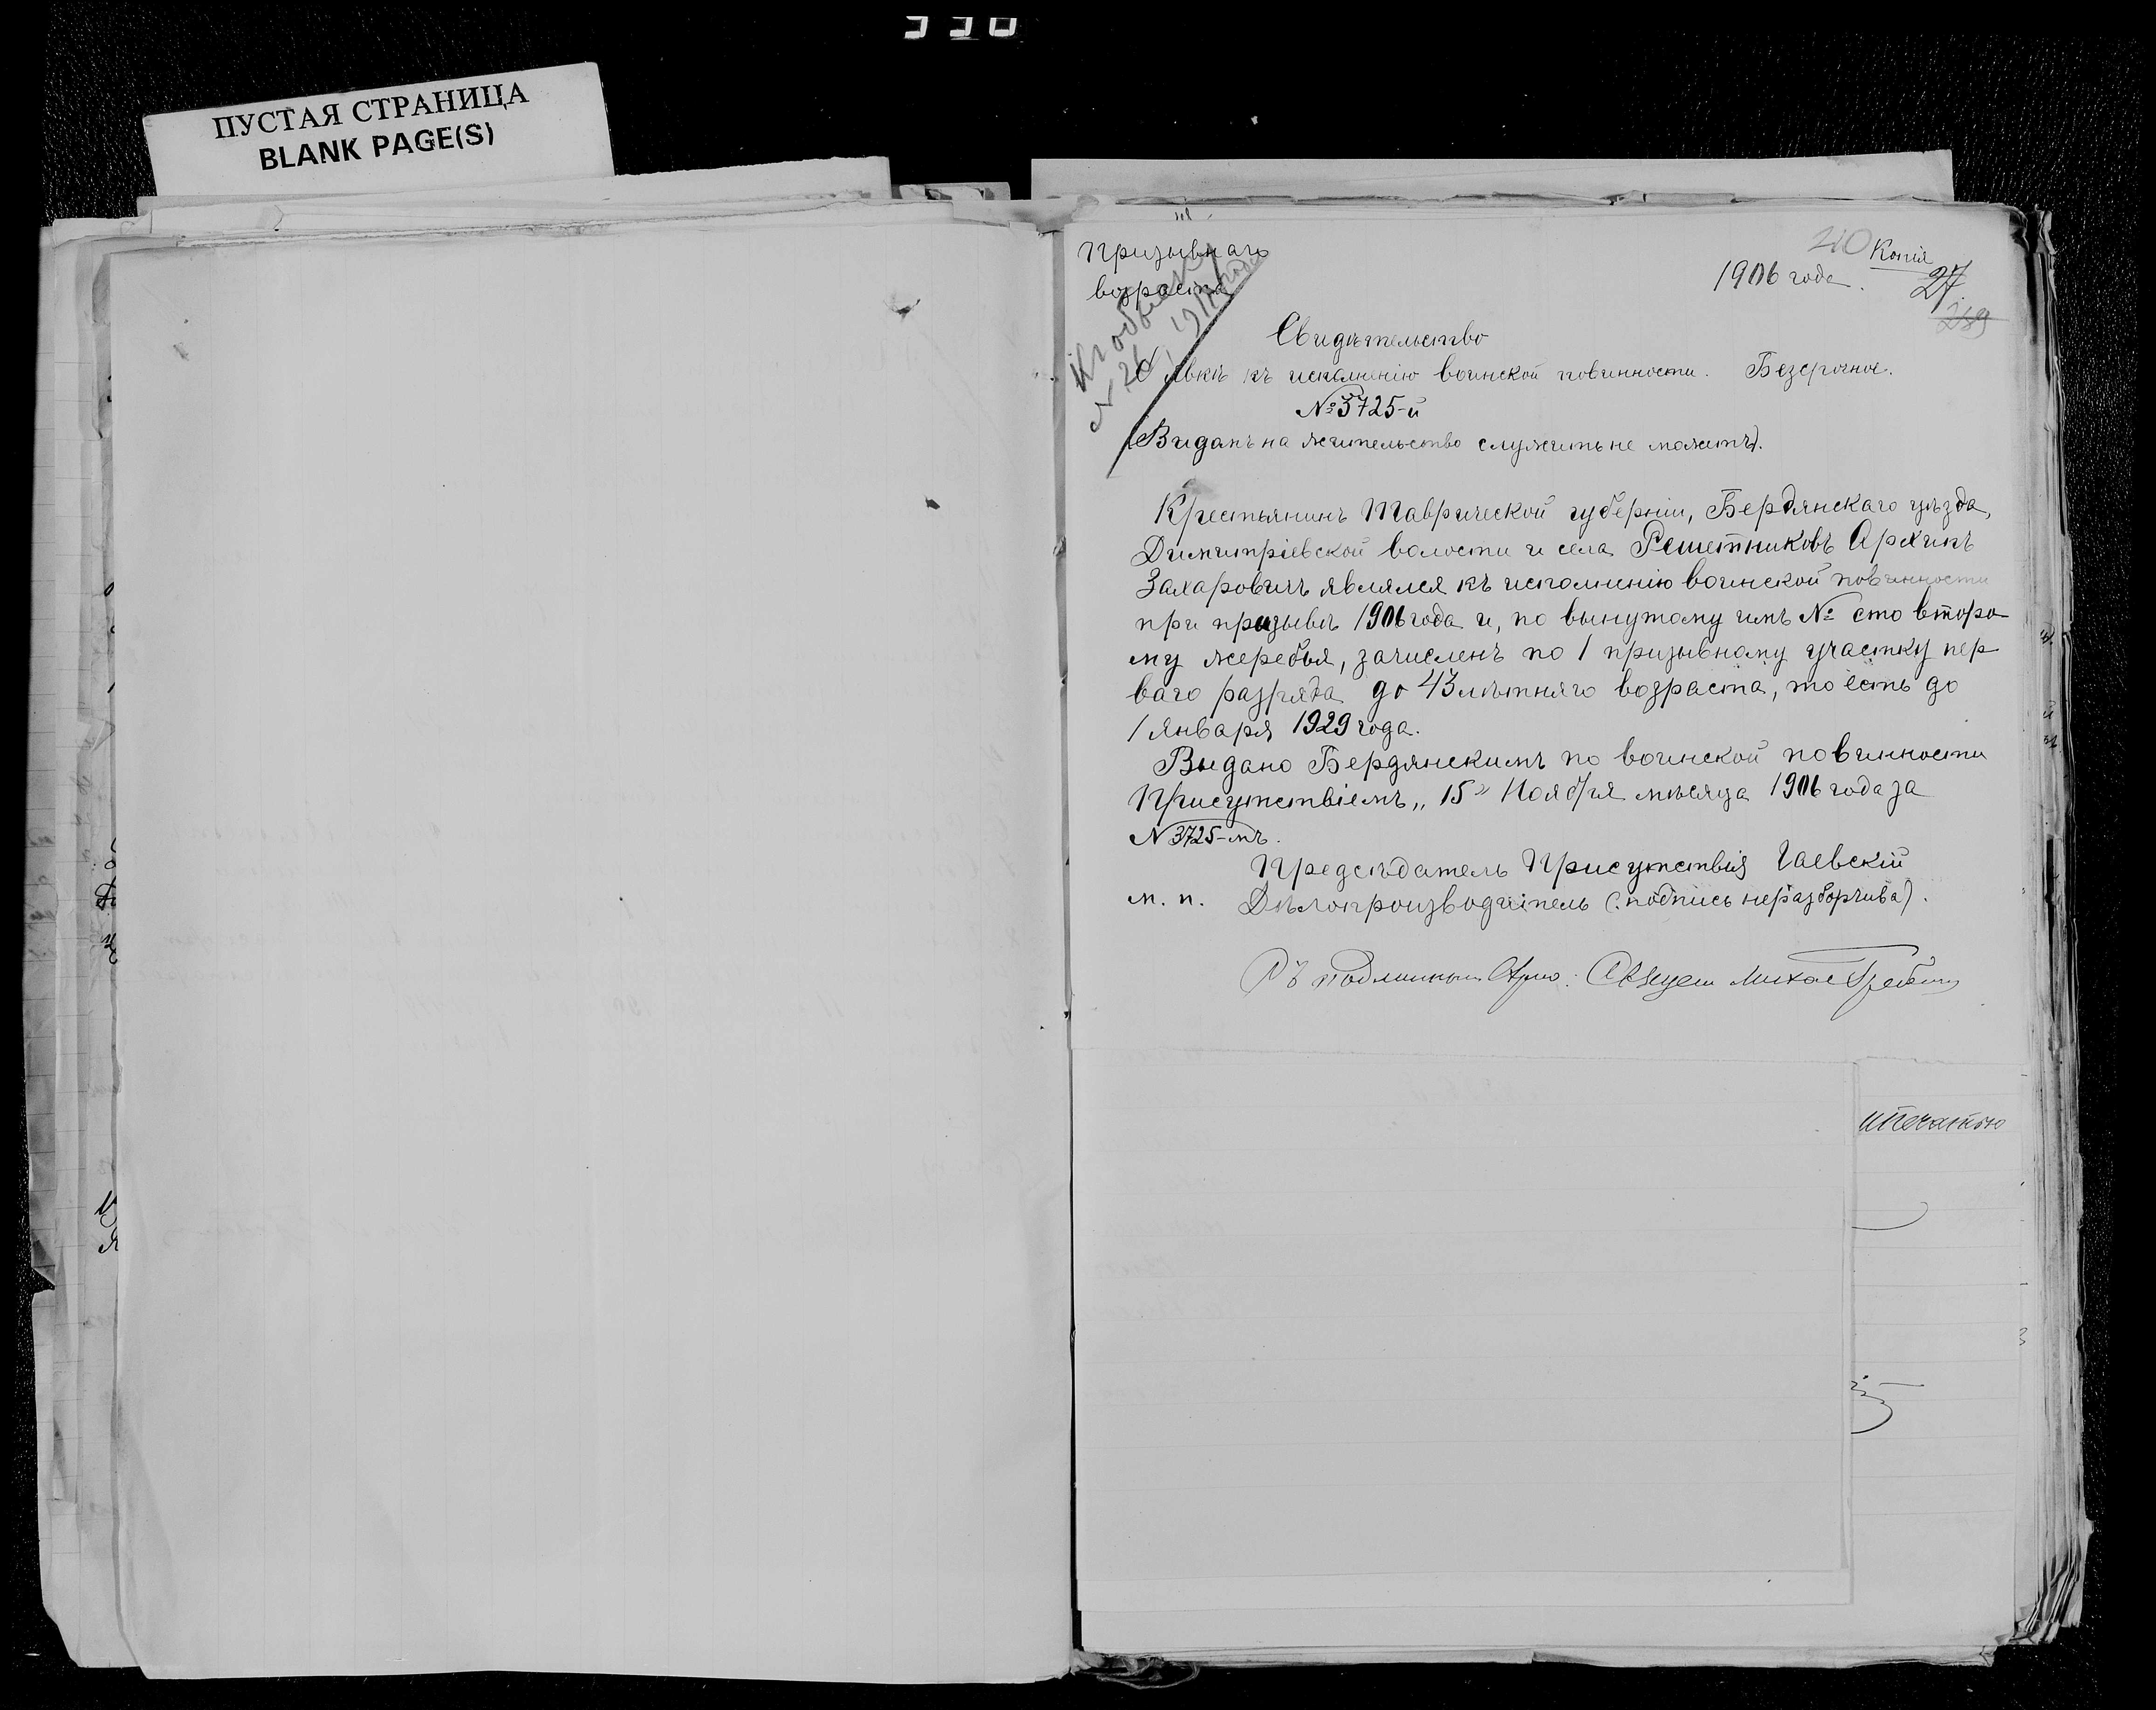 ПУСТАЯ СТРАНИЦА
BLANK PAGE(S)
Призывнаго
возраста
210 Копія
1906 года.
27
289
Свидѣтельство
О явкѣ къ исполненію воинской повинности. Безсрочное.
№ 3725-й
(Видомъ на жительство служить не можетъ).
Крестьянинъ Таврической губерніи, Бердянскаго уѣзда,
Димитріевской волости и села Решетниковъ Архипъ
Захаровичъ являлся къ исполненію воинской повинности
при призывѣ 1906 года и, по вынутому имъ № сто второ-
му жеребья, зачисленъ по 1 призывному участку пер
ваго разряда до 43 лѣтняго возраста, то есть до
1 Января 1929 года.
Выдано Бердянскимъ по воинской повинности
Присутствіемъ „15" Ноября мѣсяца 1906 года за
N 3725-мъ.
Предсѣдатель Присутствія Гаевскій
м. п. Дѣлопроизводитель (подпись неразборчива).
Съ подлиннымъ вѣрно:
и печатью